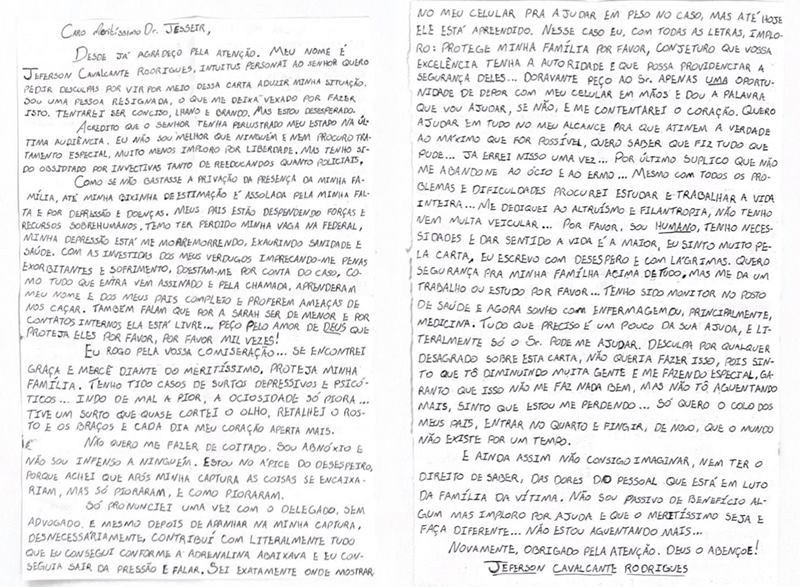 Caro Meritíssimo Dr. Jesseir,
Desde já agradeço pela atenção. Meu nome é
Jeferson Cavalcante Rodrigues, intuitus personai ao senhor quero
pedir desculpas por vir por meio dessa carta aduzir minha situação.
Sou uma pessoa resignada, o que me deixa vexado por fazer
isto. Tentarei ser conciso, lhano e brando. Mas estou desesperado.
Acredito que o senhor tenha perlustrado meu estado na úl-
tima audiência. Eu não sou melhor que ninguém e nem procuro tra-
tamento especial, muito menos imploro por liberdade. Mas tenho si-
do obsidiado por invectivas tanto de reeducandos quanto policiais.
Como se não bastasse a privação da presença da minha fa-
mília, até minha bixinha de estimação é assolada pela minha fal-
ta e por depressão e doenças. Meus pais estão despendendo forças e
recursos sobrehumanos. Temo ter perdido minha vaga na federal,
minha depressão está me morremorrendo, exaurindo sanidade e
saúde. Com as investidas dos meus verdugos imprecando-me penas
exorbitantes e sofrimento, doestam-me por conta do caso, co-
mo tudo que entra vem assinado e pela chamada, aprenderam
meu nome e dos meus pais completo e proferem ameaças de
nos caçar. Também falam que por a Sarah ser de menor e por
contatos internos ela está livre... Peço pelo amor de Deus que
proteja eles por favor, por favor mil vezes!
Eu rogo pela vossa comiseração... se encontrei
graça e mercê diante do meritíssimo, proteja minha
família. Tenho tido casos de surtos depressivos e psicó-
ticos... indo de mal a pior, a ociosidade só piora...
Tive um surto que quase cortei o olho, retalhei o ros-
to e os braços e cada dia meu coração aperta mais.
Não quero me fazer de coitado. Sou abnóxio e
não sou infenso a ninguém. Estou no ápice do desespero,
porque achei que após minha captura as coisas se encaixa-
riam, mas só pioraram, e como pioraram.
Só pronunciei uma vez com o delegado, sem
advogado. E mesmo depois de apanhar na minha captura,
desnecessariamente, contribuí com literalmente tudo
que eu consegui conforme a adrenalina abaixava e eu con-
seguia sair da pressão e falar. Sei exatamente onde mostrar
no meu celular pra ajudar em peso no caso, mas até hoje
ele está apreendido. Nesse caso eu, com todas as letras, implo-
ro: protege minha família por favor, conjeturo que vossa
excelência tenha a autoridade e que possa providenciar a
segurança deles... Doravante peço ao Sr. apenas uma oportu-
nidade de depor com meu celular em mãos e dou a palavra
que vou ajudar, se não, e me contentarei o coração. Quero
ajudar em tudo no meu alcance pra que atinem a verdade
ao máximo que for possível, quero saber que fiz tudo que
pude... Já errei nisso uma vez... Por último suplico que não
me abandone ao ócio e ao ermo... Mesmo com todos os pro-
blemas e dificuldades procurei estudar e trabalhar a vida
inteira... Me dediquei ao altruísmo e filantropia, não tenho
nem multa veicular... Por favor, sou humano, tenho neces-
sidades e dar sentido a vida é a maior, eu sinto muito pe-
la carta, eu escrevo com desespero e com lágrimas. Quero
segurança pra minha família acima de tudo, mas me da um
trabalho ou estudo por favor... Tenho sido monitor no posto
de saúde e agora sonho com enfermagem ou, principalmente,
medicina. Tudo que preciso é um pouco da sua ajuda, e li-
teralmente só o Sr. pode me ajudar. Desculpa por qualquer
desagrado sobre esta carta, não queria fazer isso, pois sin-
to que tô diminuindo muita gente e me fazendo especial, ga-
ranto que isso não me faz nada bem, mas não tô aguentando
mais, sinto que estou me perdendo... Só quero o colo dos
meus pais, entrar no quarto e fingir, de novo, que o mundo
não existe por um tempo.
E ainda assim não consigo imaginar, nem ter o
direito de saber, das dores do pessoal que está em luto
da família da vítima. Não sou passivo de benefício al-
gum mas imploro por ajuda e que o meritíssimo seja e
faça diferente... Não estou aguentando mais...
Novamente, obrigado pela atenção. Deus o abençoe!
Jeferson Cavalcante Rodrigues